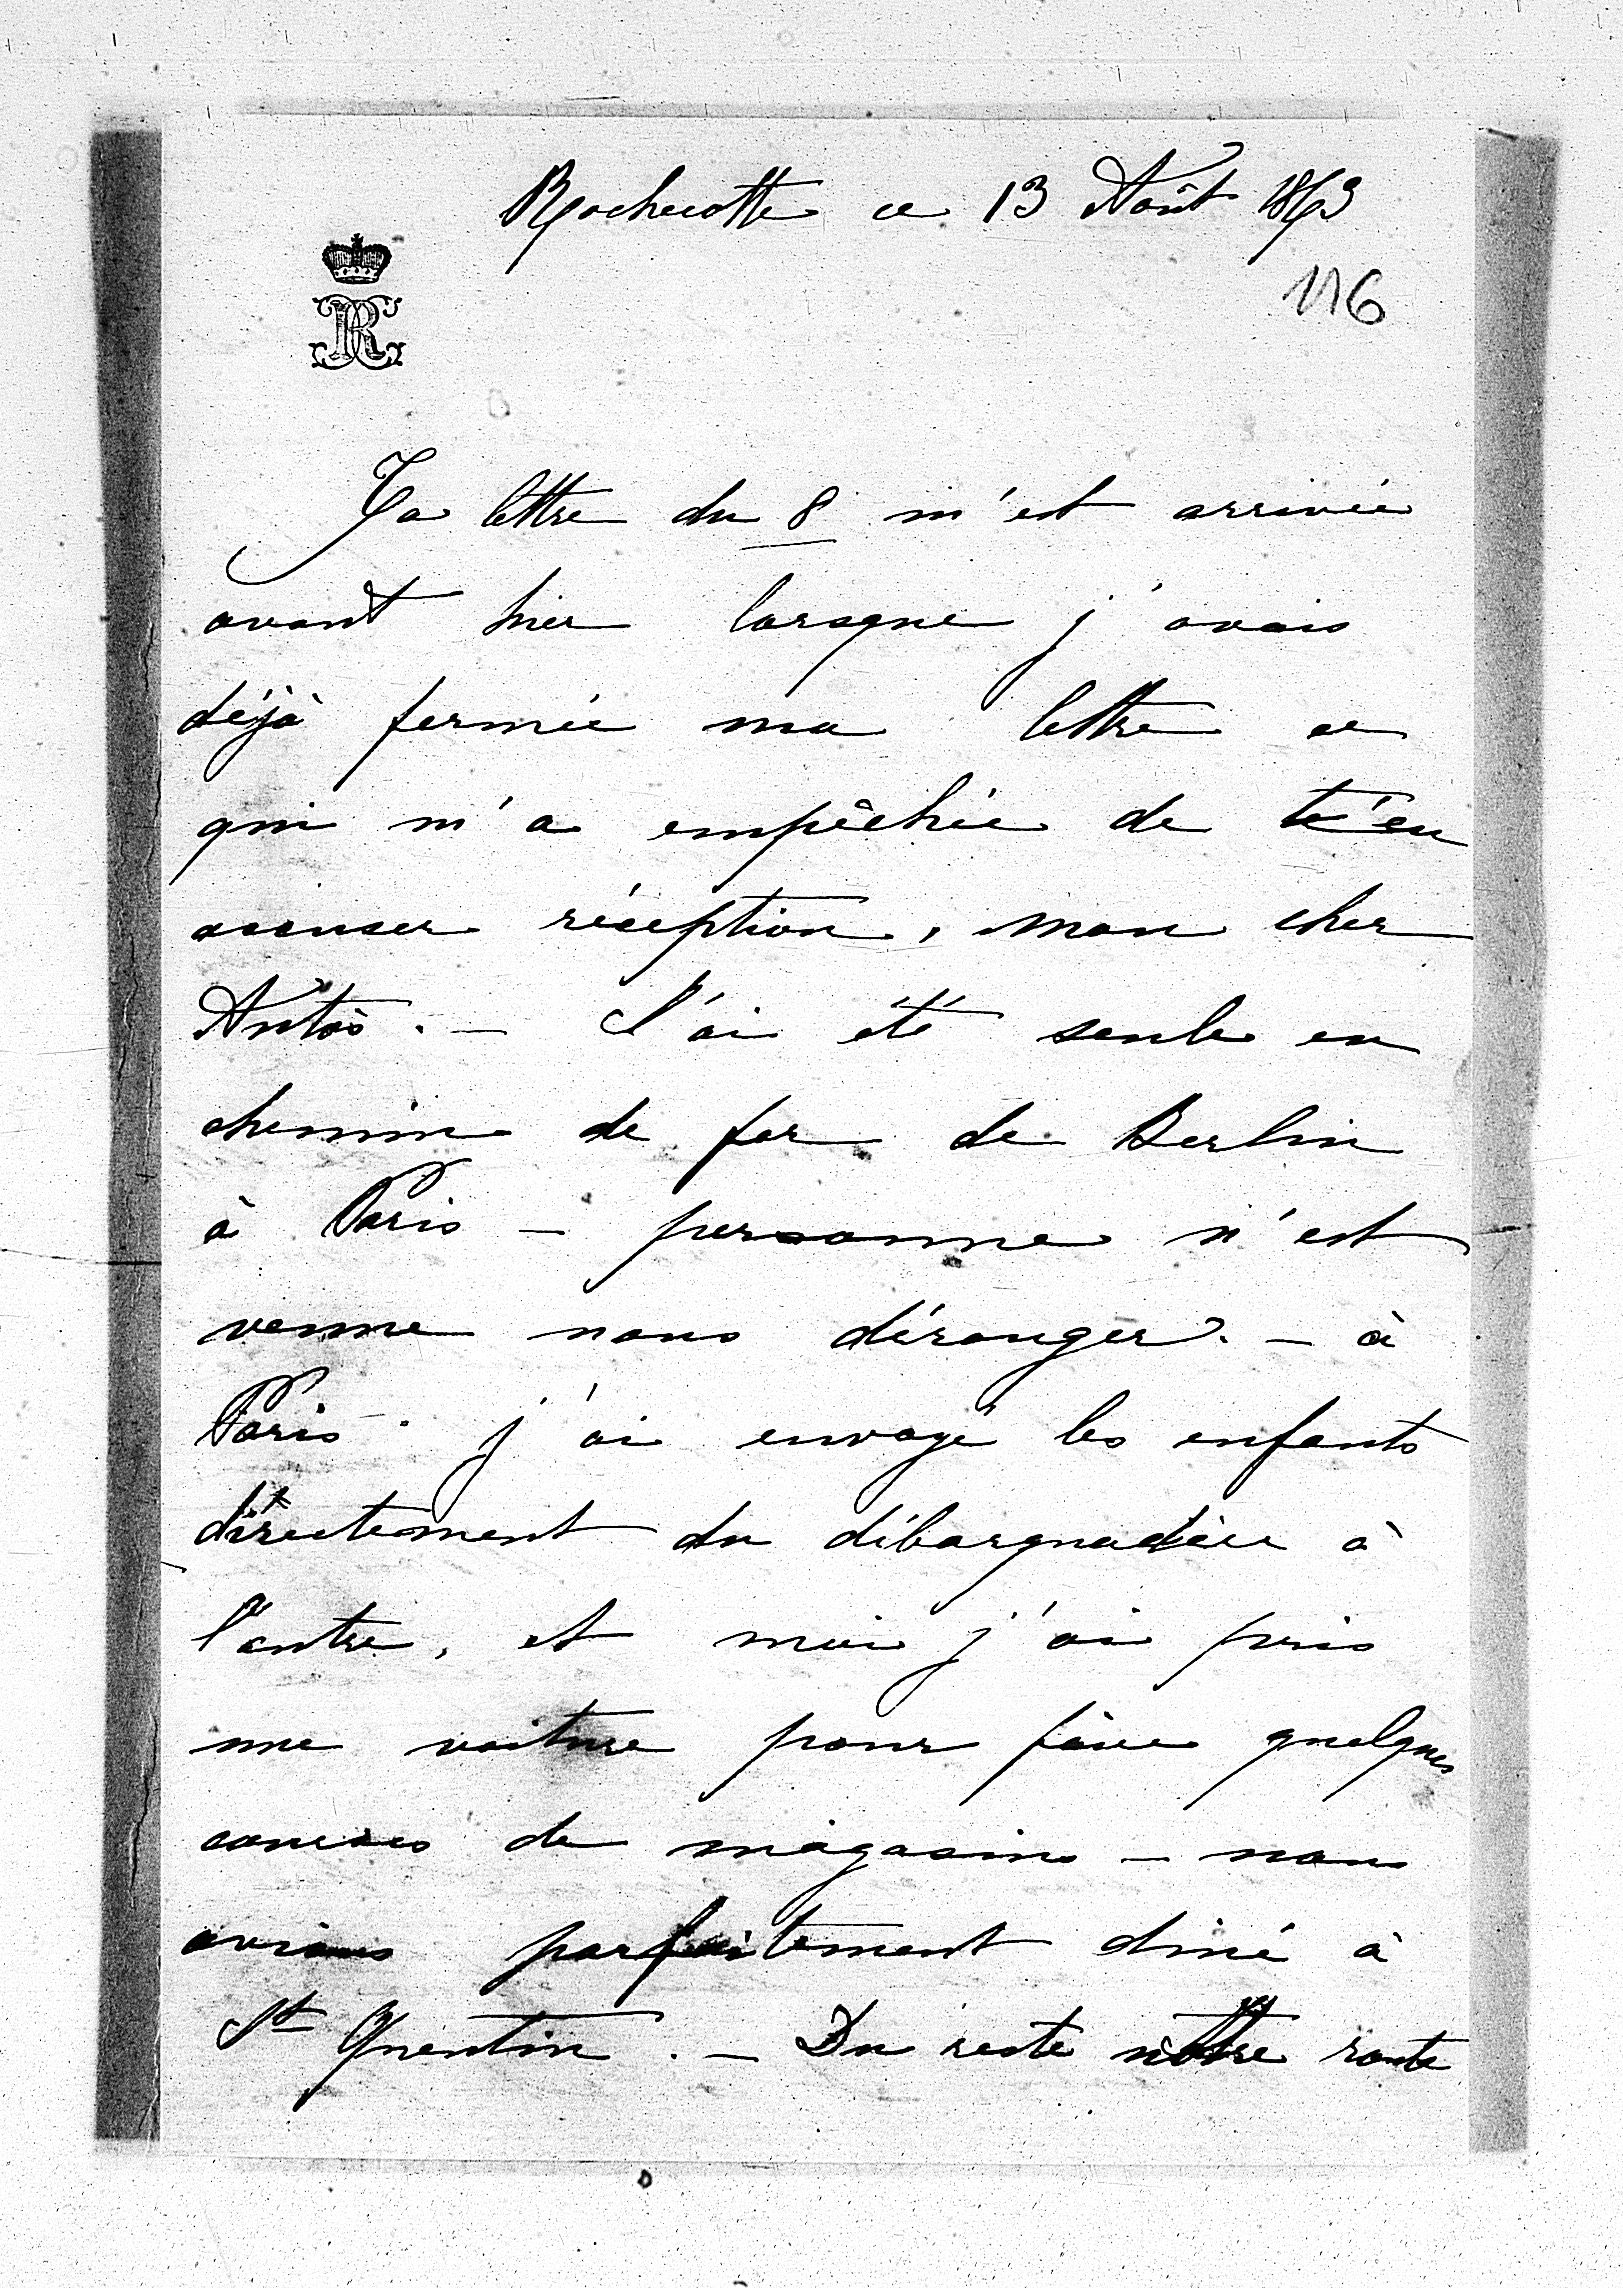 Rochecotte ce 13 Août 1863
116
Ta lettre du 8 m'est arrivée
avant hier lorsque j'avais
déjà fermée ma lettre ce
qui m'a empêchée de t'en
accuser réception, mon cher
Antos. — J'ai été seule en
chemin de fer de Berlin
à Paris — personne n'est
venue nous déranger. — à
Paris j'ai envoyé les enfants
directement du débarquadère à
l'autre, et moi j'ai pris
une voiture pour faire quelques
courses de magasins — nous
avions parfaitement diné à
St Quentin. — Du reste nôtre route